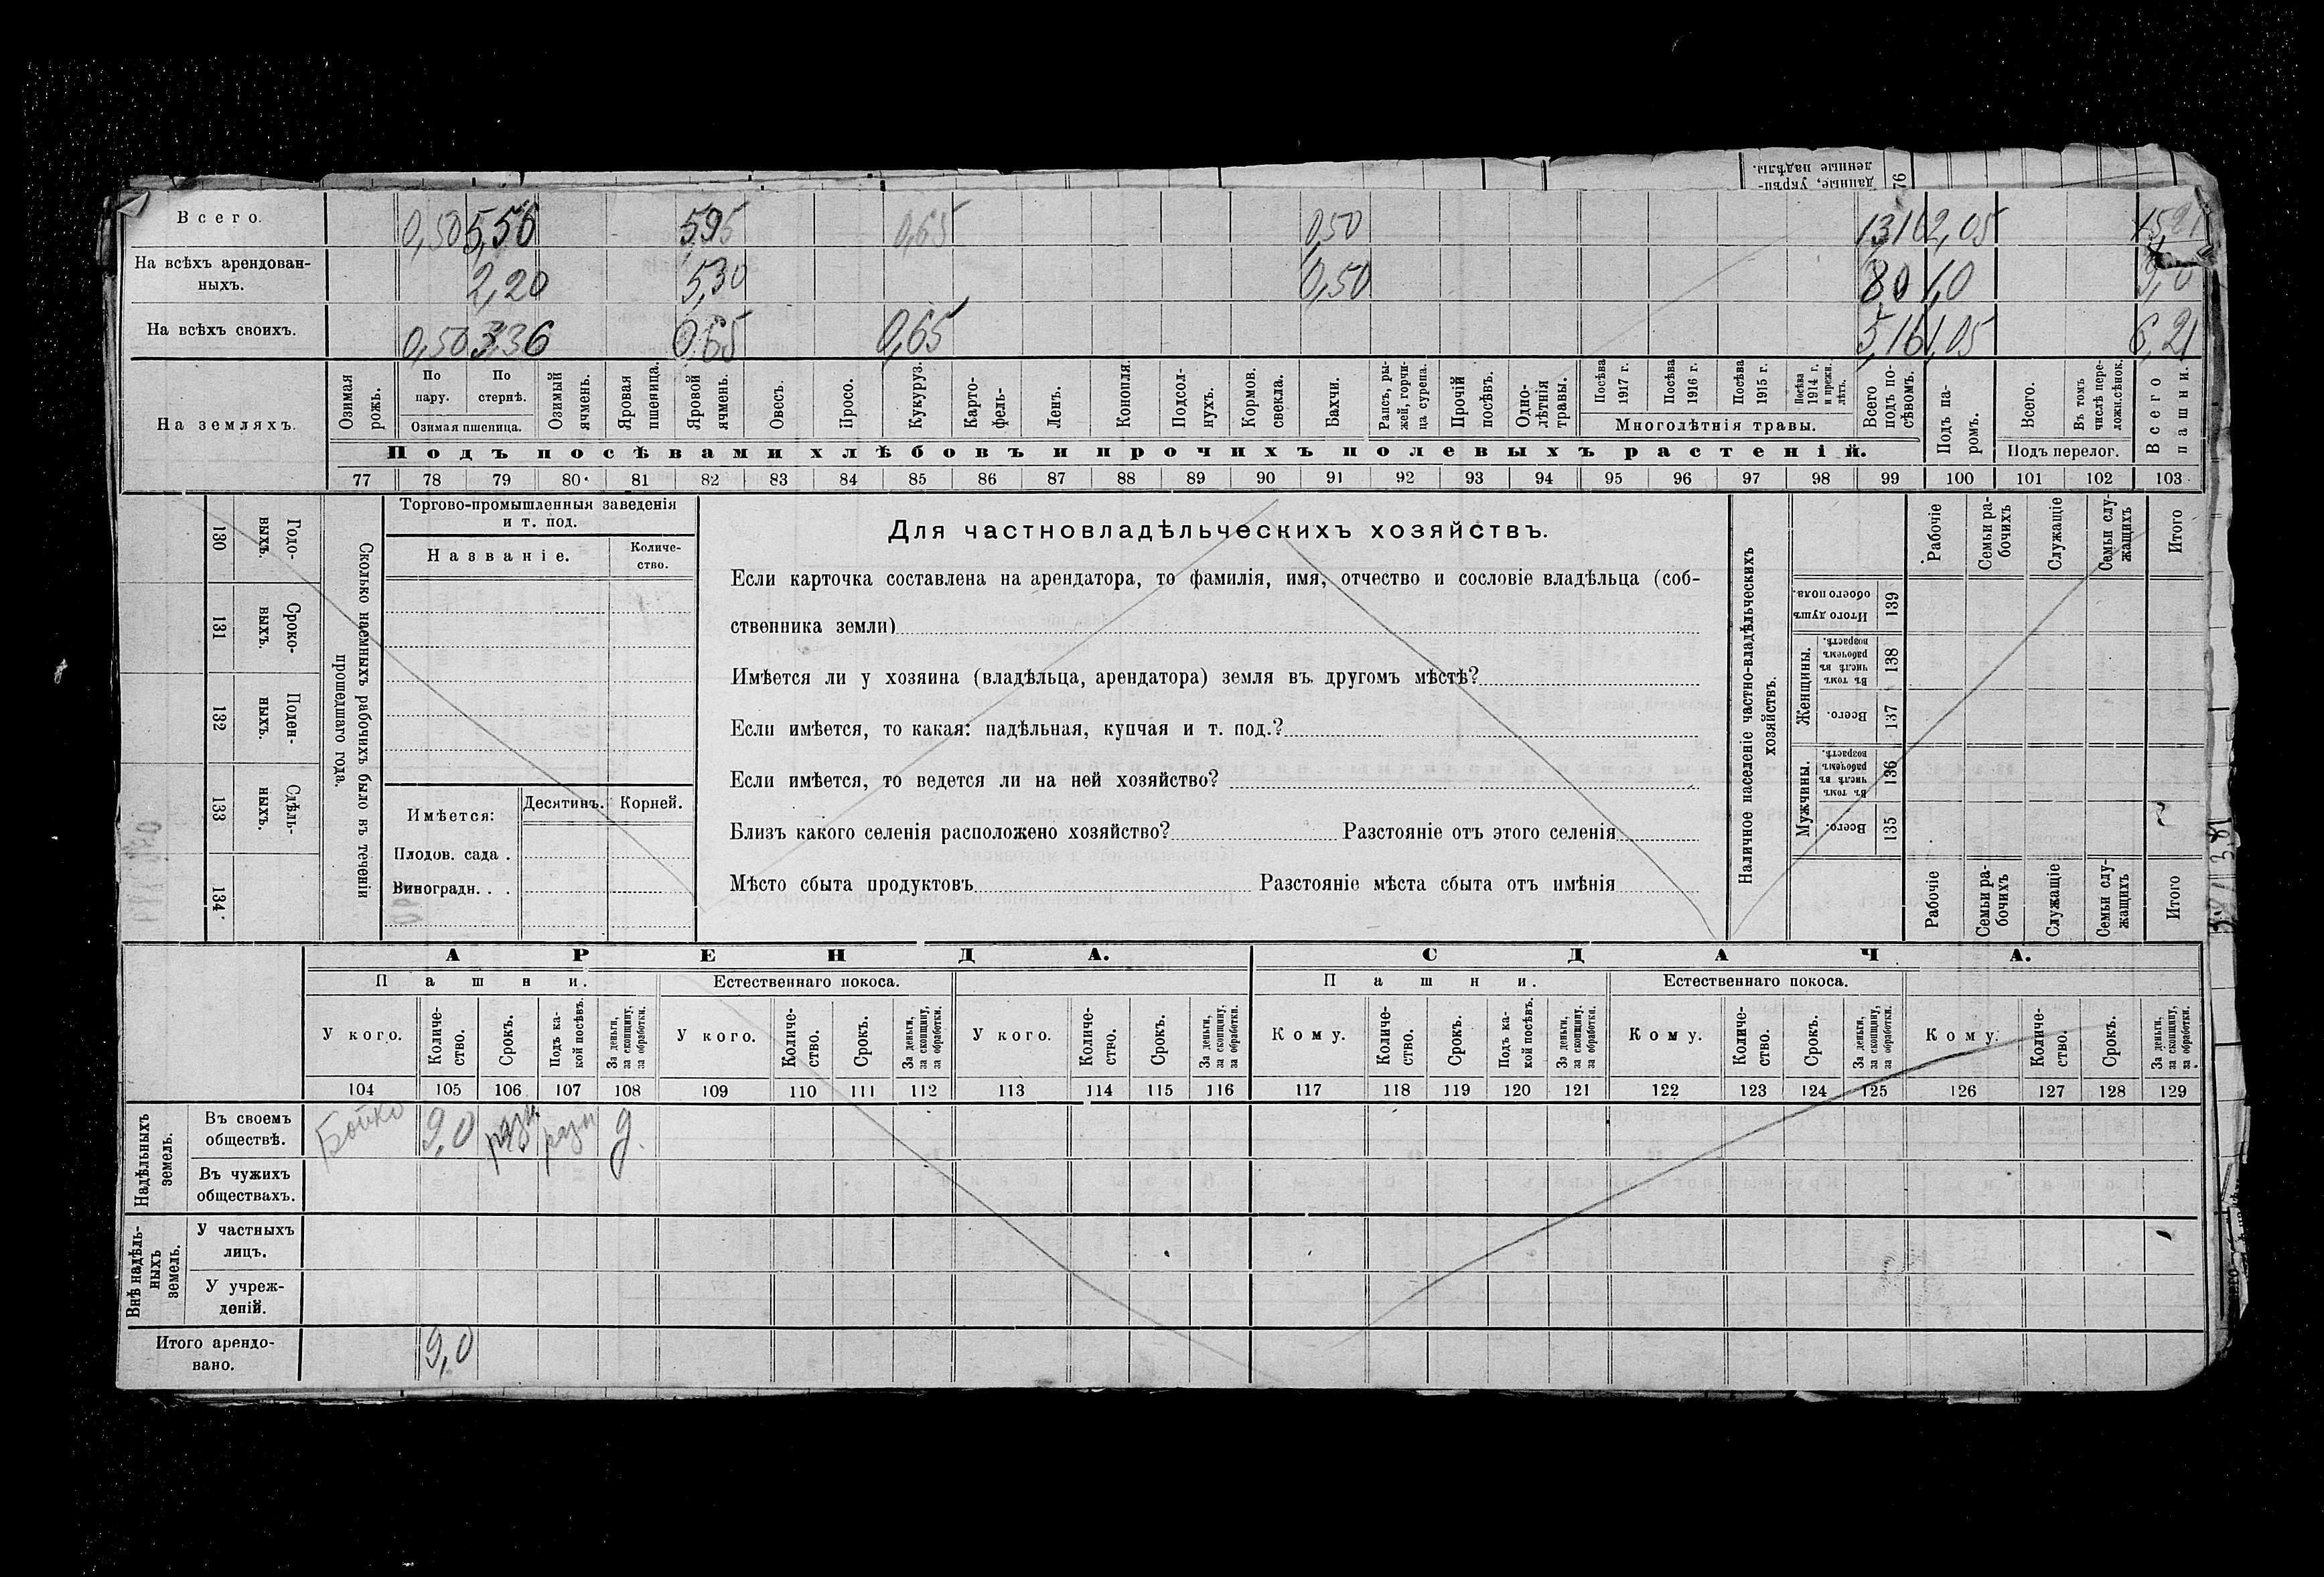 данные, укрѣп-
ленные надѣлы.
76
Всего. 0,50 5,56 5,95 0,65 0,50 13,16 2,05 15,21
На всѣхъ арендован-
ныхъ. 2,20 5,30 0,50 8,0 1,0 9,0
На всѣхъ своихъ. 0,50 3,36 0,65 0,65 5,16 1,05 6,21
На земляхъ.
Озимая рожь.
По пару.
По стернѣ.
Озимая пшеница.
Озимый ячмень.
Яровая пшеница.
Яровой ячмень.
Овесъ.
Просо.
Кукуруз.
Карто-
фель-
Ленъ.
Конопля.
Подсол-
нухъ.
Кормов. свекла.
Бахчи.
Рапсъ, ры-
жей, горчи-
ца сурепа.
Прочій посѣвъ.
Одно-
лѣтнія травы.
Посѣва 1917 г.
Посѣва 1916 г.
Посѣва 1915 г.
Посѣва 1914 г. и прежн. лѣтъ.
Многолѣтнія травы.
Всего подъ по-
сѣвомъ.
Подъ па-
ромъ.
Всего.
Въ томъ числѣ пере-
ложн.сѣнок.
Подъ перелог.
Всего пашни.
Подъ посѣвами хлѣбовъ и прочихъ полевыхъ растеній.
77 78 79 80 81 82 83 84 85 86 87 88 89 90 91 92 93 94 95 96 97 98 99 100 101 102 103
130 Годо-
выхъ.
131 Сроко-
выхъ.
132 Поден-
ныхъ.
133 Сдѣль-
ныхъ.
134
Сколько наемныхъ рабочихъ было въ теченіи
прошедшаго года.
Торгово-промышленныя заведенія
и т. под.
Названіе.
Количе-
ство.
Имѣется: Десятинъ. Корней.
Плодов. сада .
Виноградн. . .
Для частновладѣльческихъ хозяйствъ.
Если карточка составлена на арендатора, то фамилія, имя, отчество и сословіе владѣльца (соб-
ственника земли)
Имѣется ли у хозяина (владѣльца, арендатора) земля въ другомъ мѣстѣ?
Если имѣется, то какая: надѣльная, купчая и т. под.?
Если имѣется, то ведется ли на ней хозяйство?
Близъ какого селенія расположено хозяйство? Разстояніе отъ этого селенія
Мѣсто сбыта продуктовъ Разстояніе мѣста сбыта отъ имѣнія
Наличное населеніе частно-владѣльческихъ
хозяйствъ.
Рабочіе
Семьи ра-
бочихъ
Служащіе
Семьи слу-
жащихъ
Итого
Итого душъ обоего пола. 139
Женщины.
Въ томъ числѣ въ рабочемъ возрастѣ. 138
Всего. 137
Мужчины.
Въ томъ числѣ въ рабочемъ возрастѣ. 136
Всего. 135
Рабочіе
Семьи ра-
бочихъ
Служащіе
Семьи слу-
жащихъ
Итого
АРЕНДА. СДАЧА.
Пашни. Естественнаго покоса. Пашни. Естественнаго покоса.
У кого.
Количе-
ство.
Срокъ.
Подъ ка-
кой посѣвъ.
За деньги,
за скопщину,
за обработки.
У кого.
Количе-
ство.
Срокъ.
За деньги,
за скопщину,
за обработки.
У кого.
Количе-
ство.
Срокъ.
За деньги,
за скопщину,
за обработки.
Кому.
Количе-
ство.
Срокъ.
Подъ ка-
кой посѣвъ.
За деньги,
за скопщину,
за обработки.
Кому.
Количе-
ство.
Срокъ.
За деньги,
за скопщину,
за обработки.
Кому.
Количе-
ство.
Срокъ.
За деньги,
за скопщину,
за обработки.
104 105 106 107 108 109 110 111 112 113 114 115 116 117 118 119 120 121 122 123 124 125 126 127 128 129
Надѣльныхъ
земель.
Въ своемъ
обществѣ. Бойко 9,0 разн разн д.
Въ чужихъ
обществахъ.
Внѣ надѣль-
ныхъ
земель.
У частныхъ
лицъ.
У учреж-
деній.
Итого арендо-
вано. 9,0